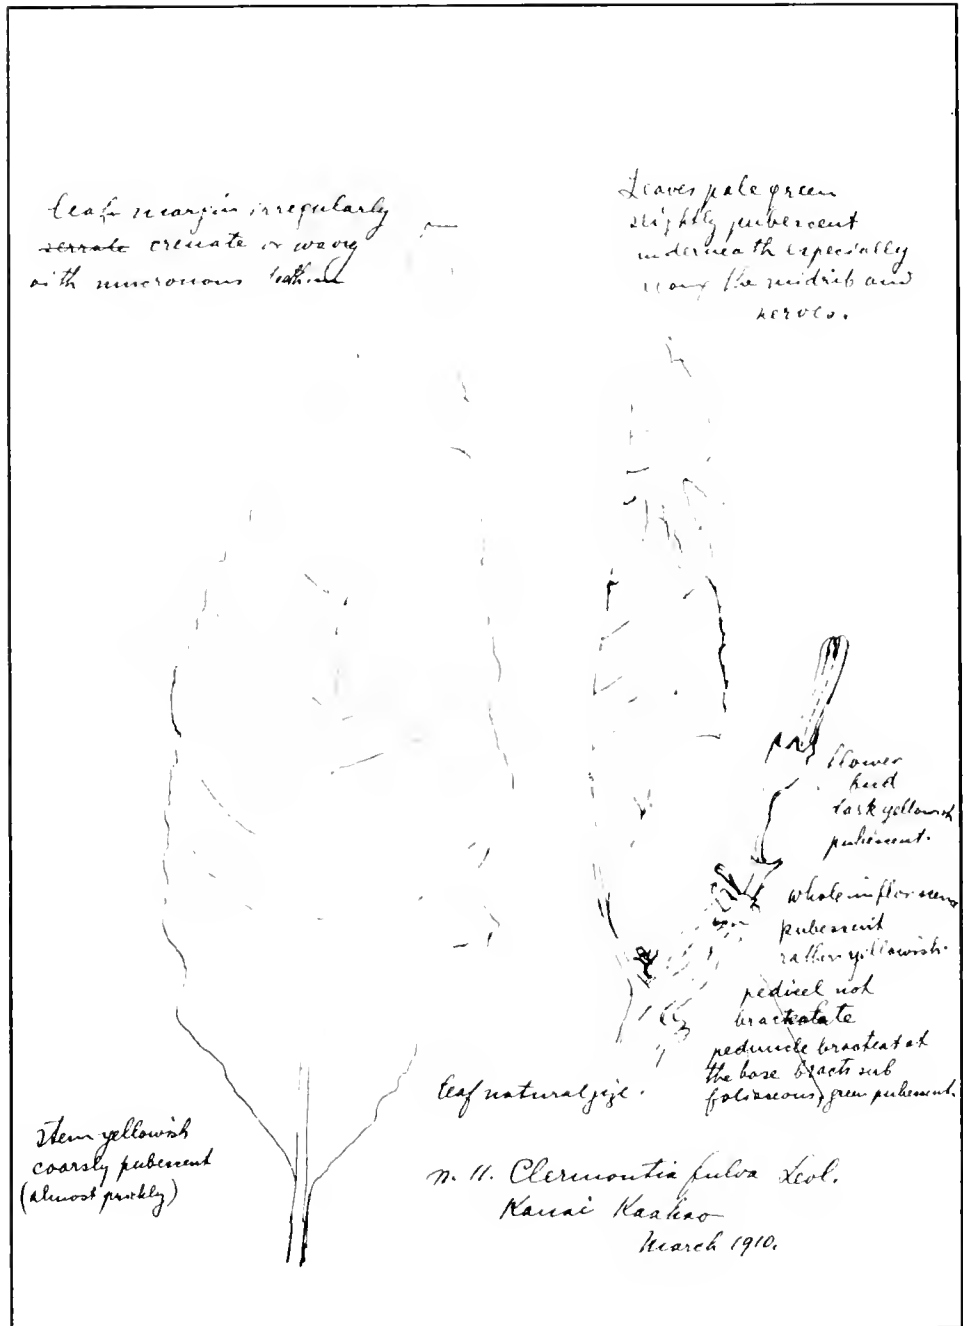 leaf margin irregularly
serrate crenate or wavy
with mucronous
Leaves pale green
slightly pubescent
underneath especially
along the midrib and
nerves.
flower
bud
dark yellowish
pubescent.
whole inflorescence
pubescent
rather yellowish.
pedicel not
bracteolate
peduncle bracteat at
the base bracts sub
foliaceous, green pubescent.
leaf natural size.
Stem yellowish
coarsly pubescent
(almost prickly)
n. 11. Clermontia fulva Levl.
Kauai Kaahao
March 1910.